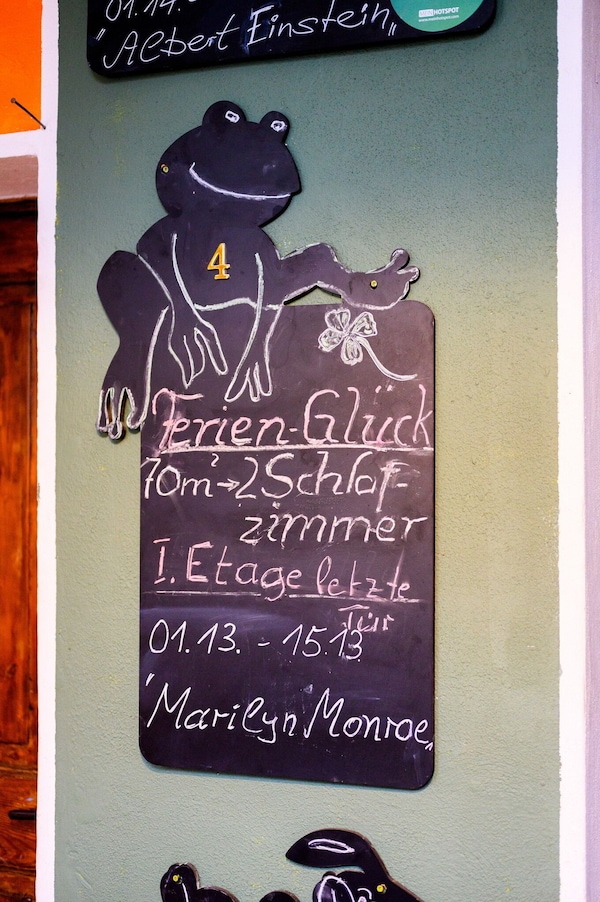 01.14.-
"Albert Einstein"
HOTSPOT
4
Ferien-Glück
70m²→2 Schlaf-
zimmer
I. Etage letzte
Tür
01.13. - 15.13
"Marilyn Monroe"